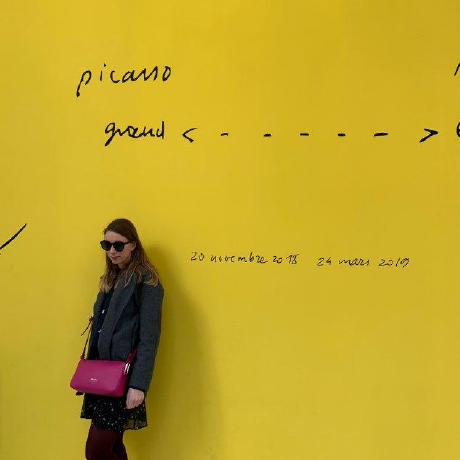 picasso
grand < - - - - - >
20 novembre 2018 24 mars 2019